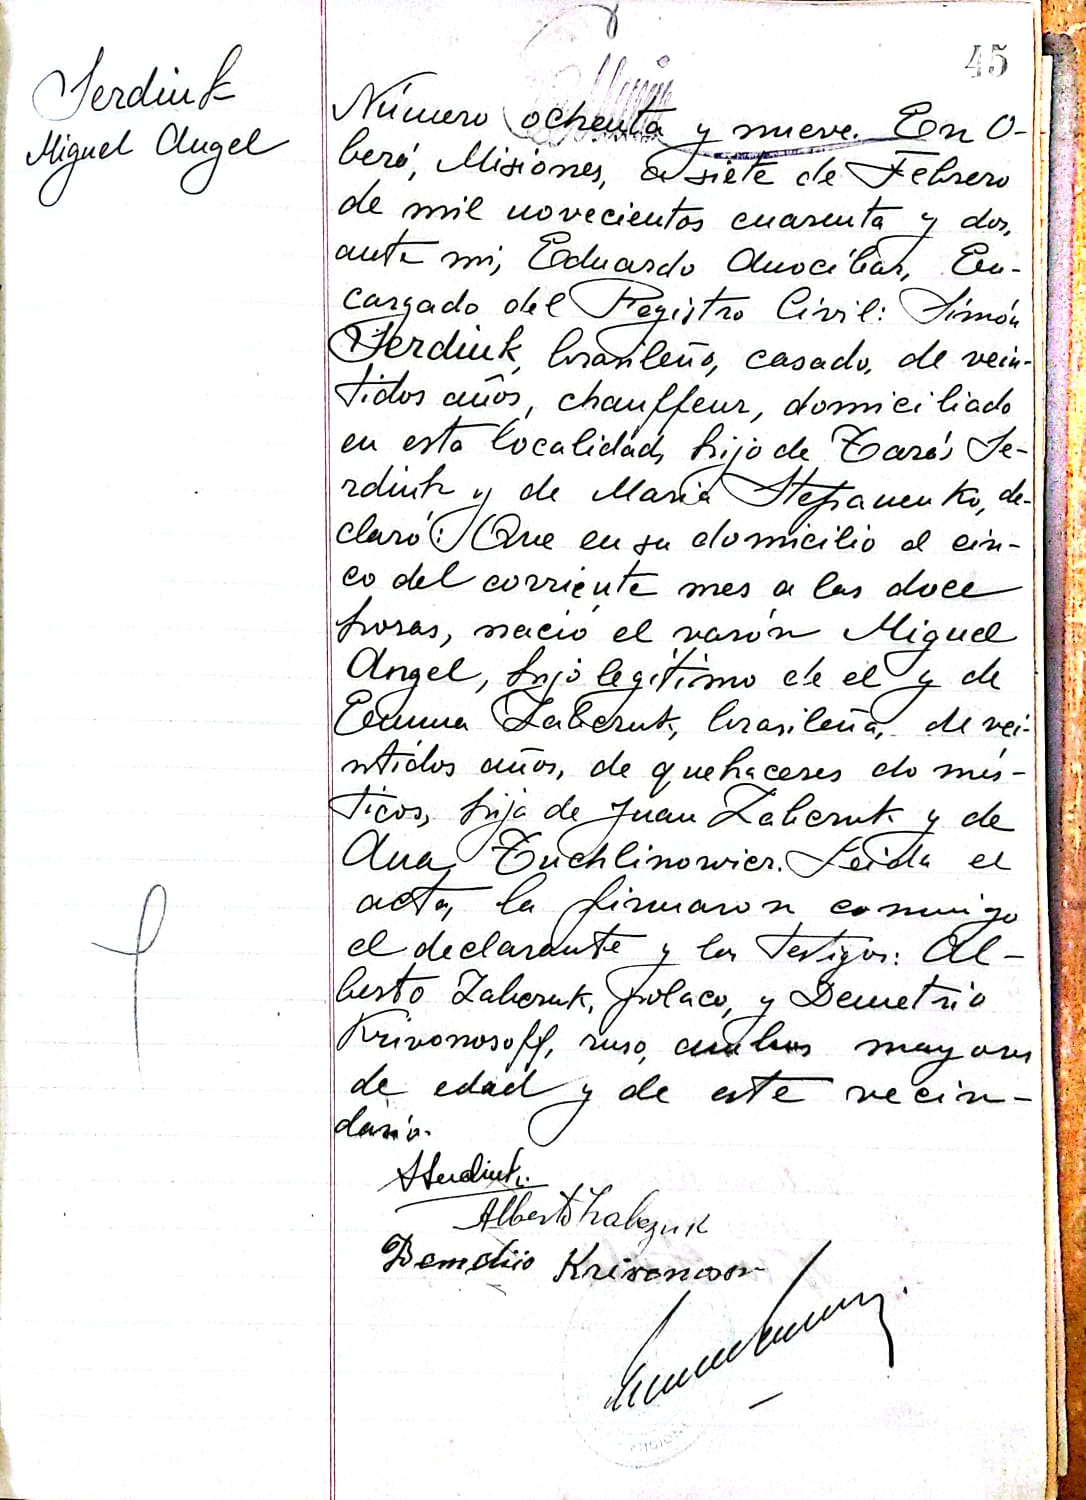 45
Serdiuk
Miguel Angel
Número ochenta y nueve. En O-
berá, Misiones, a siete de Febrero
de mil novecientos cuarenta y dos,
ante mi, Eduardo Anocibar, En-
cargado del Registro Civil: Simón
Serdiuk, brasileño, casado, de vein-
tidos años, chauffeur, domiciliado
en esta localidad, hijo de Tarás Se-
rdiuk y de Maria Stepanenko, de-
claró: Que en su domicilio el cin-
co del corriente mes a las doce
horas, nació el varón Miguel
Angel, hijo legítimo de el y de
Emma Zabczuk, brasileña, de vei-
ntidos años, de quehaceres domés-
ticos, hija de Juan Zabczuk y de
Ana Tuchlinowicz. Leida el
acta, la firmaron conmigo
el declarante y los testigos: Al-
berto Zabczuk, polaco, y Demetrio
Krivonosoff, ruso, ambos mayores
de edad y de este vecin-
dario.
SSerdiuk
Alberto Zabczuk
Demetrio Krivonosov